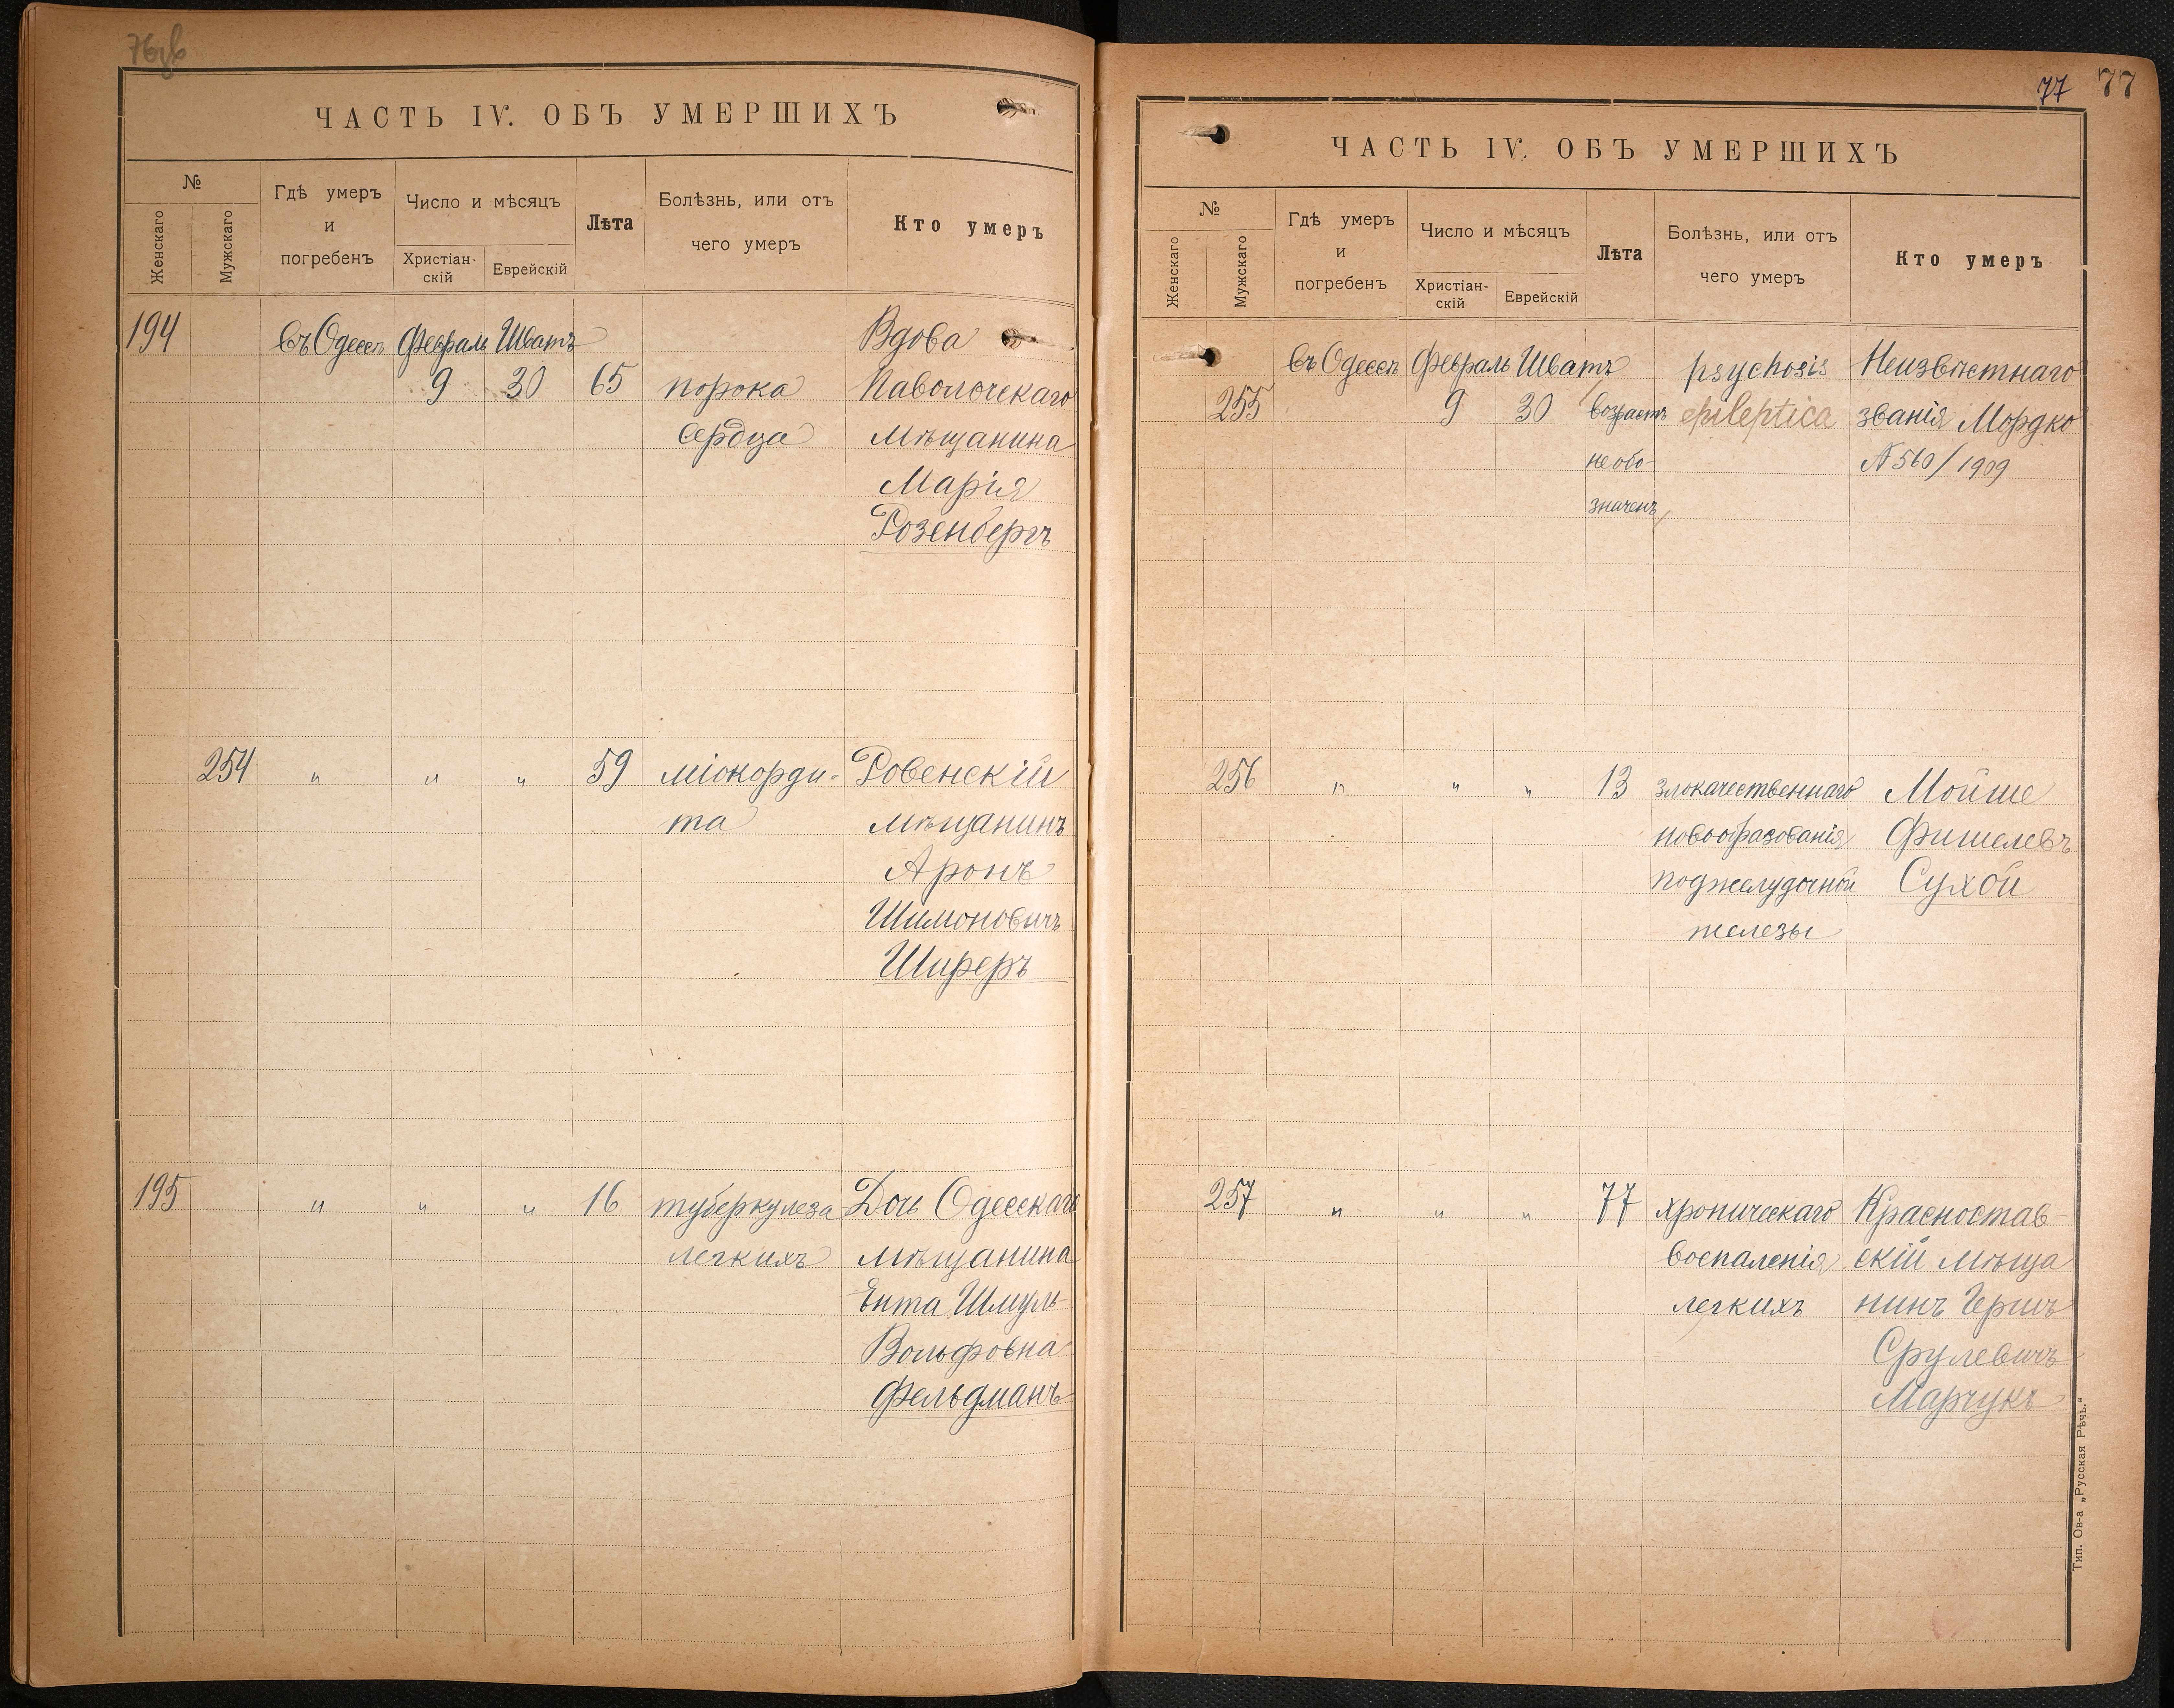 76об
ЧАСТЬ IV. ОБЪ УМЕРШИХЪ
№
Женскаго
Мужскаго
Гдѣ умеръ
и
погребенъ
Число и мѣсяцъ
Христіан-
скій
Еврейскій
Лѣта
Болѣзнь, или отъ
чего умеръ
Кто умеръ
194 въ Одессѣ Февраль Шватъ Вдова
9 30 65 порока Паволочскаго
сердца мѣщанина
Марія
Розенбергъ
254 " " " 59 міокорди- Ровенскій
та мѣщанинъ
Аронъ
Шимоновичъ
Ширеръ
195 " " " 16 туберкулеза Дочь Одесскаго
легкихъ мѣщанина
Ента Шмуль-
Вольфовна
Фельдманъ
77 77
ЧАСТЬ IV. ОБЪ УМЕРШИХЪ
№
Женскаго
Мужскаго
Гдѣ умеръ
и
погребенъ
Число и мѣсяцъ
Христіан-
скій
Еврейскій
Лѣта
Болѣзнь, или отъ
чего умеръ
Кто умеръ
въ Одессѣ Февраль Шватъ psychosis Неизвѣстнаго
255 9 30 возрастъ epileptica званія Мордко
необо- № 560/1909
значенъ
256 " " " 13 злокачественнаго Мойше
новообразованія Фишелевъ
поджелудочной Сухой
железы
257 " " " 77 хроническаго Красностав-
воспаленія скій мѣща
легкихъ нинъ Гершъ
Срулевичъ
Марчукъ
Тип. Ов-а „Русская Рѣчь.“